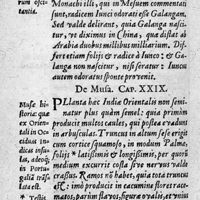 rum osci-
tantia.
Monachi illi, qui in Mesuem commentati
sunt, radicem Iunci odorati eße Galangam.
Sed valde delirant, quia Galanga nasci-
tur, vt diximus in China, quæ distat ab
Arabia duobus millibus milliarium. Dif-
fert etiam folijs & radice à Iunco: & Ga-
langa non nascitur, nisi seratur: Iuncus
autem odoratus sponte prouenit.
De Musa. CAP. XXIX.
Musæ hi-
storia: quæ
ex Orien-
tali in Oc-
ciduas In-
sulas
in Por-
tugaliã tráſ
lata est.
* Testis
PLanta hæc Indiæ Orientalis non semi-
natur plus quàm semel: quia primùm
producit multos caules, qui postea euadunt
in arbusculas. Truncus in altum sese erigit
cum cortice squamoso, in modum Palmæ.
Folijs * latissimis & longissimis, per quorũ
medium excurrit costa siue neruus valdè
crassus. Ramos nõ habet, quia tota truncus
est. hic producit in cacumine flores
matos, parũ flauos, figura ouali, & vnius